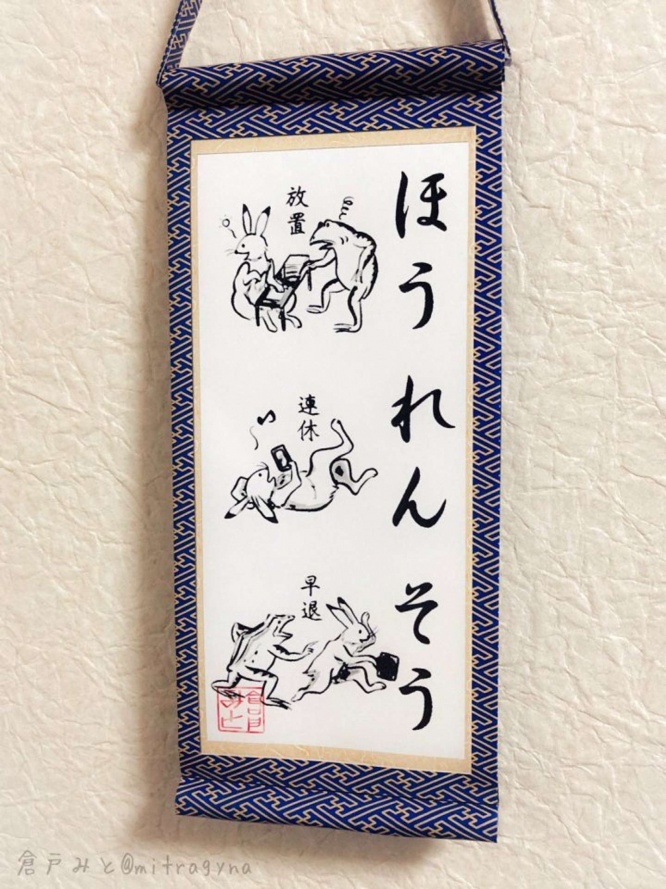 ほうれんそう
放置
連休
早退
倉戸みと
倉戸みと@mitragyna